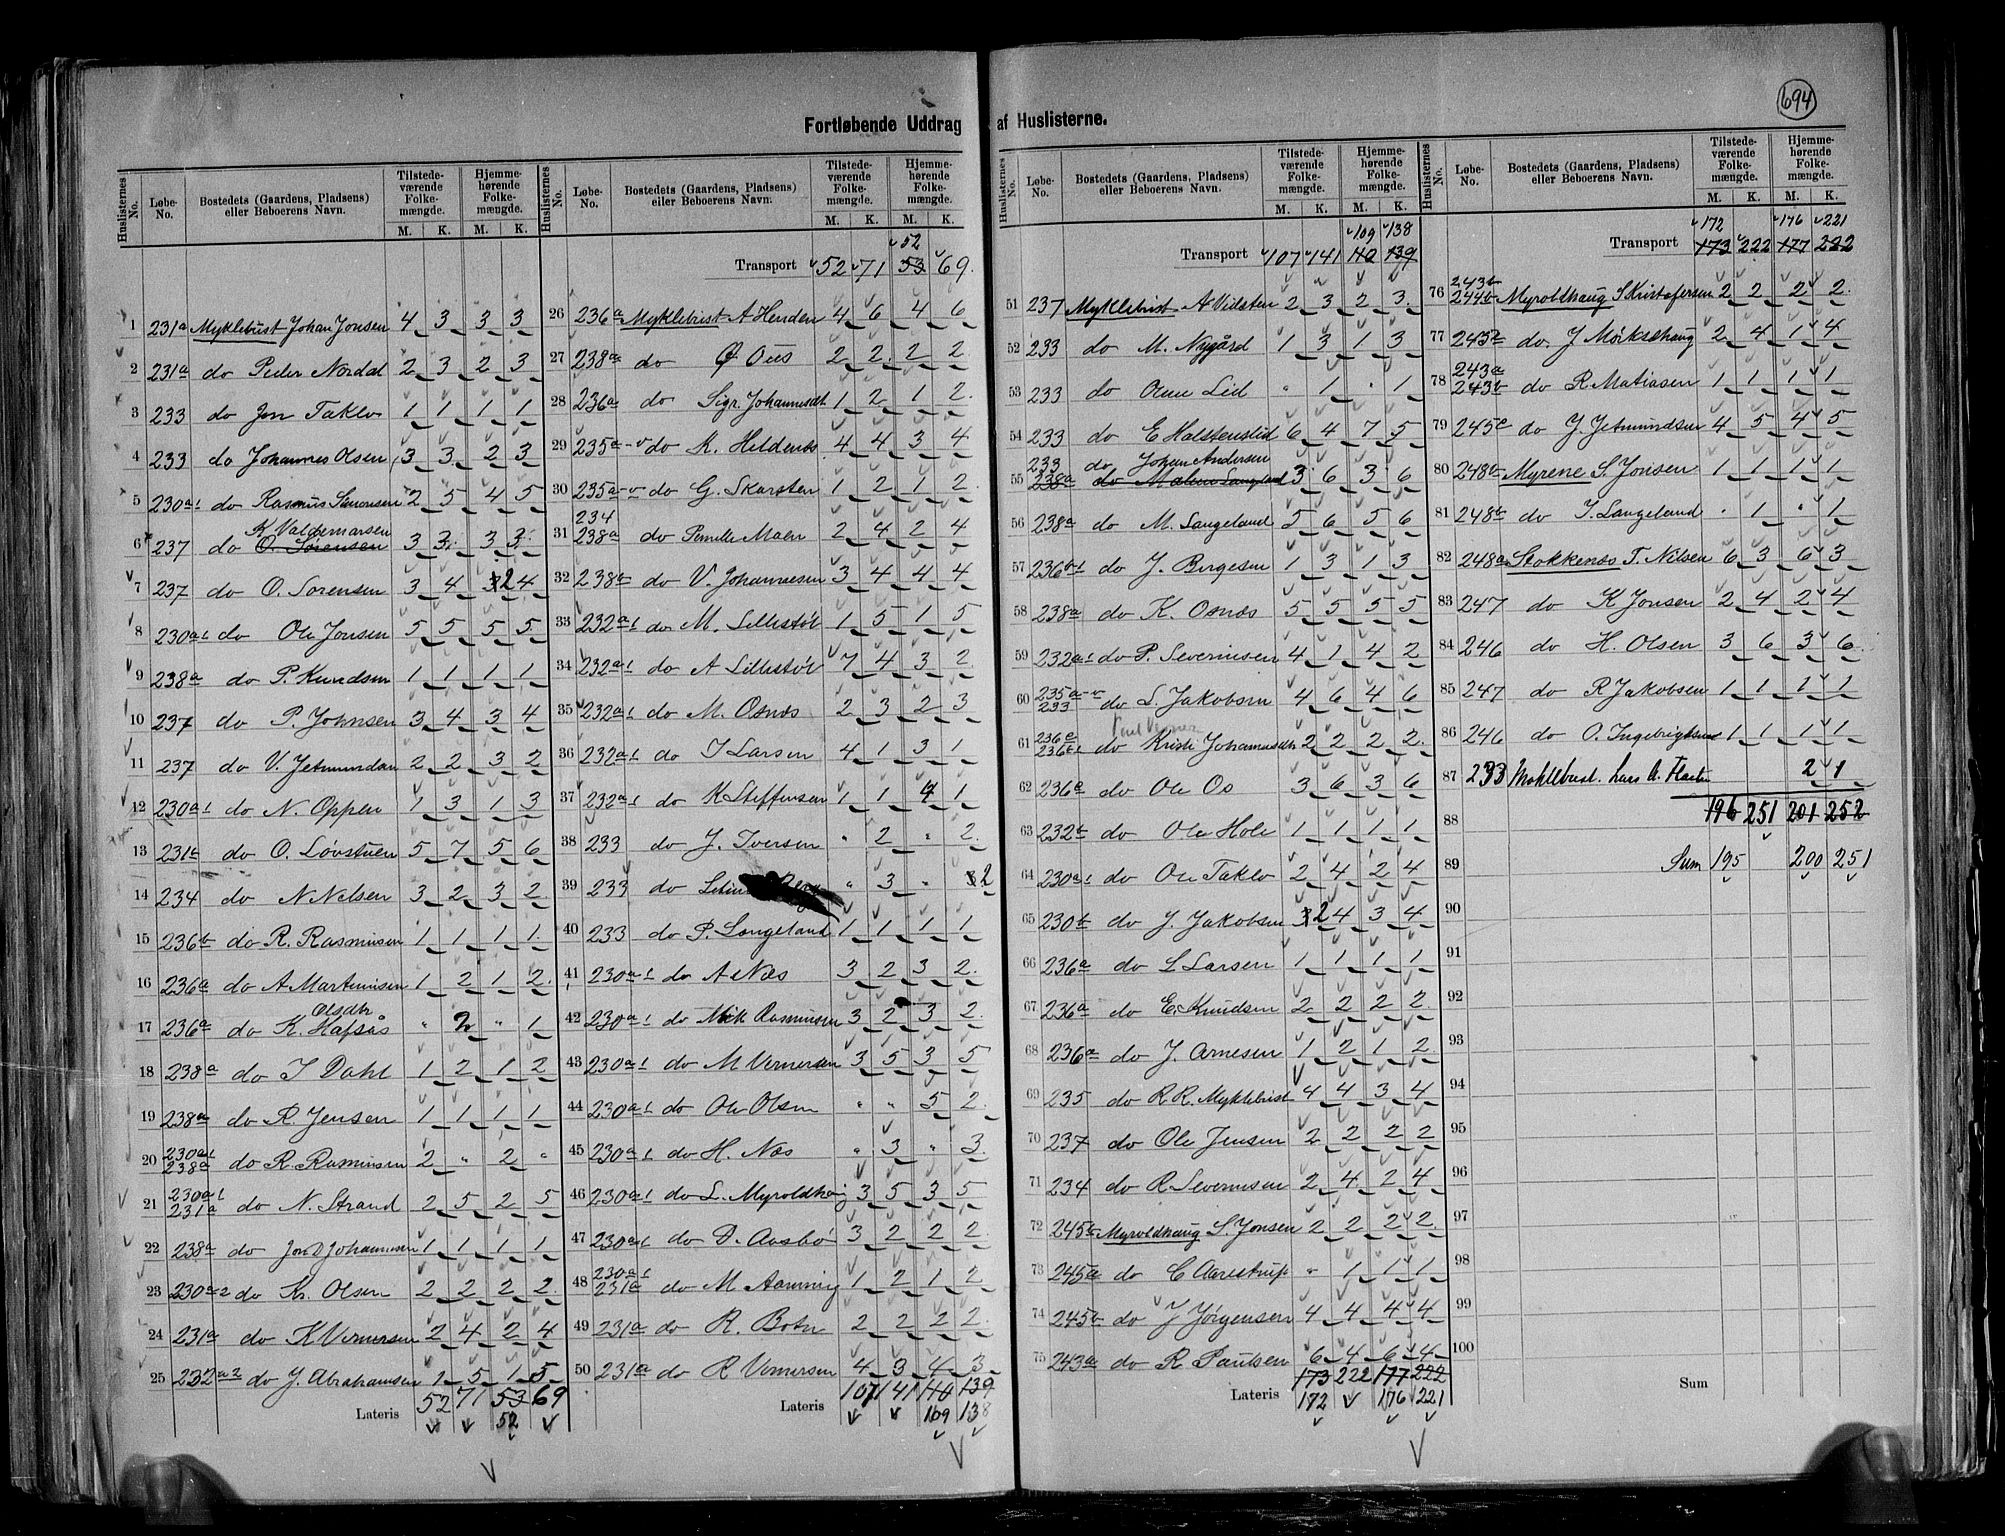 694
Fortløbende Uddrag af Huslisterne.
Huslisternes No. Løbe-No. Bostedets (Gaardens, Pladsens) eller Beboerens Navn. Tilstedeværende Folkemængde. M. K. Hjemmehørende Folkemængde. M. K.
1 231a Myklebust Johan Jonsen 4 3 3 3
2 231a do Peder Nordal 2 3 2 3
3 233 do Jon Taklo 1 1 1 1
4 233 do Johannes Olsen 3 3 2 3
5 230a1 do Rasmus Simonsen 2 5 4 5
6 237 do K Valdemarsen O. Sørensen 3 3 3 3
7 237 do O. Sørensen 3 4 2 4
8 230a1 do Ole Jonsen 5 5 5 5
9 238a do P. Knudsen 1 1 1 1
10 237 do P. Johnsen 3 4 3 4
11 237 do V. Jetmundsen 2 2 3 2
12 230a1 do N. Oppen 1 3 1 3
13 231a do O. Løvstuen 5 7 5 6
14 234 do N Nilsen 3 2 3 2
15 236b do R. Rasmusen 1 1 1 1
16 236a do A Martinusen 1 2 1 2
17 236a do K. Olsdtr Hafsås " 2 " 1
18 238a do I Dahl 1 2 1 2
19 238a do R Jensen 1 1 1 1
20 230a1 238a do R. Rasmusen 2 " 2 "
21 230a1 231a do N. Strand 2 5 2 5
22 238a do Jon D Johannesen 1 1 1 1
23 230a2 do Kr. Olsen 2 2 2 2
24 231a do K Vernersen 2 4 2 4
25 232a2 do J. Abrahamsen 1 5 1 5
Lateris 52 71 53 69
52
Huslisternes No. Løbe-No. Bostedets (Gaardens, Pladsens) eller Beboerens Navn. Tilstedeværende Folkemængde. M. K. Hjemmehørende Folkemængde. M. K.
52
Transport 52 71 53 69.
26 236a Myklebust A Henden 4 6 4 6
27 238a do O Ous 2 2 2 2
28 236a do Sigr. Johannesdt 1 2 1 2
29 235a-v do K. Hildenes 4 4 3 4
30 235a-v do G. Skarsten 1 2 1 2
31 234 238a do Pernille Maen 2 4 2 4
32 238a do V. Johannesen 3 4 4 4
33 232a1 do M. Lillestøl 1 5 1 5
34 232a1 do A Lillestøl 7 4 3 2
35 232a1 do M. Osnes 2 3 2 3
36 232a1 do I Larsen 4 1 3 1
37 232a1 do K Steffensen 1 1 4 1
38 233 do J. Iversen " 2 " 2
39 233 do " 3 " 2
40 233 do P. Langeland 1 1 1 1
41 230a1 do A Næs 3 2 3 2
42 230a1 do Mik Rasmusen 3 2 3 2
43 230a1 do M Vernersen 3 5 3 5
44 230a1 do Ole Olsen " " 5 2
45 230a1 do H. Næs " 3 " 3
46 230a1 do L. Myroldhaug 3 5 3 5
47 230a1 do D. Aasbø 3 2 2 2
48 230a1 231a do M Aanning 1 2 1 2
49 231a do R. Botn 2 2 2 2
50 231a do R Vernersen 4 3 4 3
Lateris 107 141 110 139
109 138
Huslisternes No. Løbe-No. Bostedets (Gaardens, Pladsens) eller Beboerens Navn. Tilstedeværende Folkemængde. M. K. Hjemmehørende Folkemængde. M. K.
109 138
Transport 107 141 110 139
51 237 Myklebust A Vilsten 2 3 2 3
52 233 do M. Nygård 1 3 1 3
53 233 do Lid " 1 " 1
54 233 do E Halstenslid 6 4 7 5
233 do Johan Andersen
55 238a do Malene Langeland 3 6 3 6
56 238a do M. Langeland 5 6 5 6
57 236b1 do J. Birgesen 1 3 1 3
58 238a do K. Osnæs 5 5 5 5
59 232a1 do P. Severinsen 4 1 4 2
60 235a-v 233 do L. Jakobsen 4 6 4 6
61 236c 236b1 do Kristi Johannesdtr 2 2 2 2
62 236a do Ole Os 3 6 3 6
63 232b do Ole Hole 1 1 1 1
64 230a1 do Ole Taklo 2 4 2 4
65 230b do J. Jakobsen 2 4 3 4
66 236a do L Larsen 1 1 1 1
67 236a do E. Knudsen 2 2 2 2
68 236a do J. Arnesen 1 2 1 2
69 235 do R R. Myklebust 4 4 3 4
70 237 do Ole Jensen 2 2 2 2
71 234 do R Severinsen 2 4 2 4
72 245b Myroldhaug S. Jonsen 2 2 2 2
73 245a do C Aarestrup " 1 1 1
74 245b do J Jørgensen 4 4 4 4
75 243a do R Paulsen 6 4 6 4
173 222 177 222
Lateris 172 176 221
Huslisternes No. Løbe-No. Bostedets (Gaardens, Pladsens) eller Beboerens Navn. Tilstedeværende Folkemængde. M. K. Hjemmehørende Folkemængde. M. K.
172 176 221
Transport 173 222 177 222
76 243b 244b Myroldhaug S Kristofersen 2 2 2 2
77 245b do. J Mørksehaug 2 4 1 4
78 243a 243b do R Matiasen 1 1 1 1
79 245c do J Jetmundsen 4 5 4 5
80 248b Myrene S. Jonsen 1 1 1 1
81 248b do I. Langeland " 1 " 1
82 248a Stokkenes T. Nilsen 6 3 6 3
83 247 do K Jonsen 2 4 2 4
84 246 do H. Olsen 3 6 3 6
85 247 do R Jakobsen 1 1 1 1
86 246 do O. Ingebrigtsen 1 1 1 1
87 233 Myklebust. Lars A. 2 1
88 196 251 201 252
89 Sum 195 200 251
90
91
92
93
94
95
96
97
98
99
100
Sum